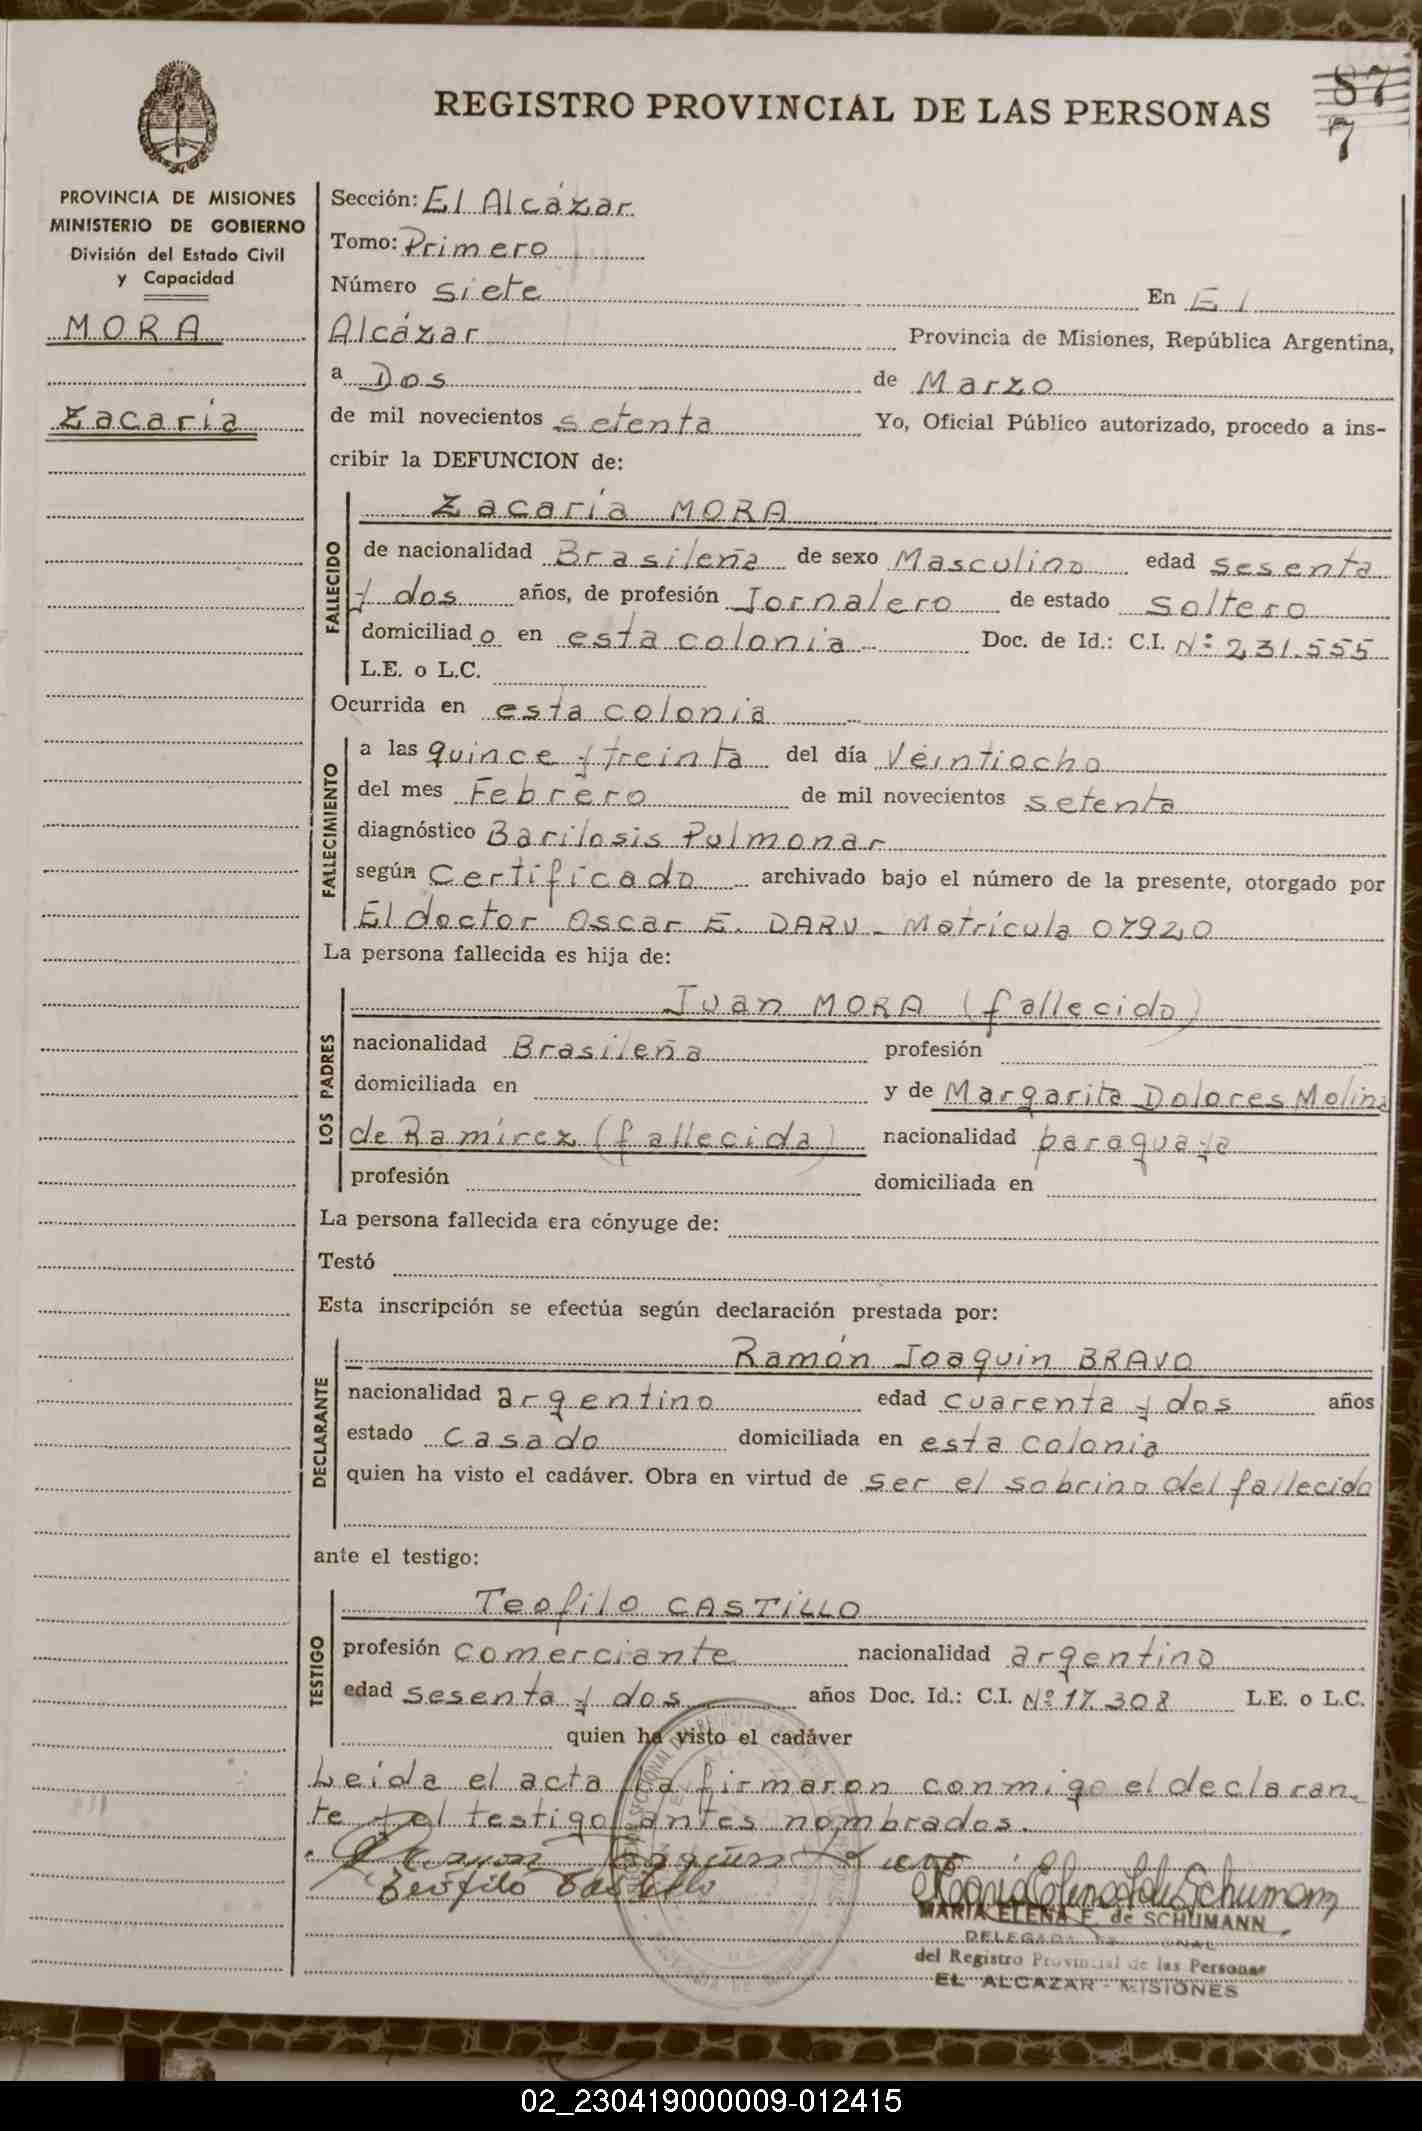 REGISTRO PROVINCIAL DE LAS PERSONAS
87
7
PROVINCIA DE MISIONES
MINISTERIO DE GOBIERNO
División del Estado Civil
y Capacidad
MORA
Zacaría
Sección: El Alcázar
Tomo: Primero
Número siete En El
Alcázar Provincia de Misiones, República Argentina,
a Dos de Marzo
de mil novecientos setenta Yo, Oficial Público autorizado, procedo a ins-
cribir la DEFUNCION de:
FALLECIDO
Zacaría MORA
de nacionalidad Brasileña de sexo Masculino edad sesenta
y dos años, de profesión Jornalero de estado soltero
domiciliado en esta colonia Doc. de Id.: C.I. Nº 231.555
L.E. o L.C.
Ocurrida en esta colonia
FALLECIMIENTO
a las quince y treinta del día Veintiocho
del mes Febrero de mil novecientos setenta
diagnóstico Barilosis Pulmonar
según Certificado archivado bajo el número de la presente, otorgado por
El doctor Oscar E. DARU - Matrícula 07920
La persona fallecida es hija de:
LOS PADRES
Juan MORA (fallecido)
nacionalidad Brasileña profesión
domiciliada en y de Margarita Dolores Molina
de Ramírez (fallecida) nacionalidad paraguaya
profesión domiciliada en
La persona fallecida era cónyuge de:
Testó
Esta inscripción se efectúa según declaración prestada por:
DECLARANTE
Ramón Joaquin BRAVO
nacionalidad argentino edad cuarenta y dos años
estado Casado domiciliada en esta colonia
quien ha visto el cadáver. Obra en virtud de ser el sobrino del fallecido
ante el testigo:
TESTIGO
Teofilo CASTILLO
profesión comerciante nacionalidad argentino
edad sesenta y dos años Doc. Id.: C.I. Nº 17.308 L.E. o L.C.
quien ha visto el cadáver
Leida el acta la firmaron conmigo el declaran-
te y el testigo antes nombrados.
Ramon Joaquin Bravo
Teofilo Castillo
MARIA ELENA F. de SCHUMANN
DELEGADA
del Registro Provincial de las Personas
EL ALCAZAR - MISIONES
02_230419000009-012415